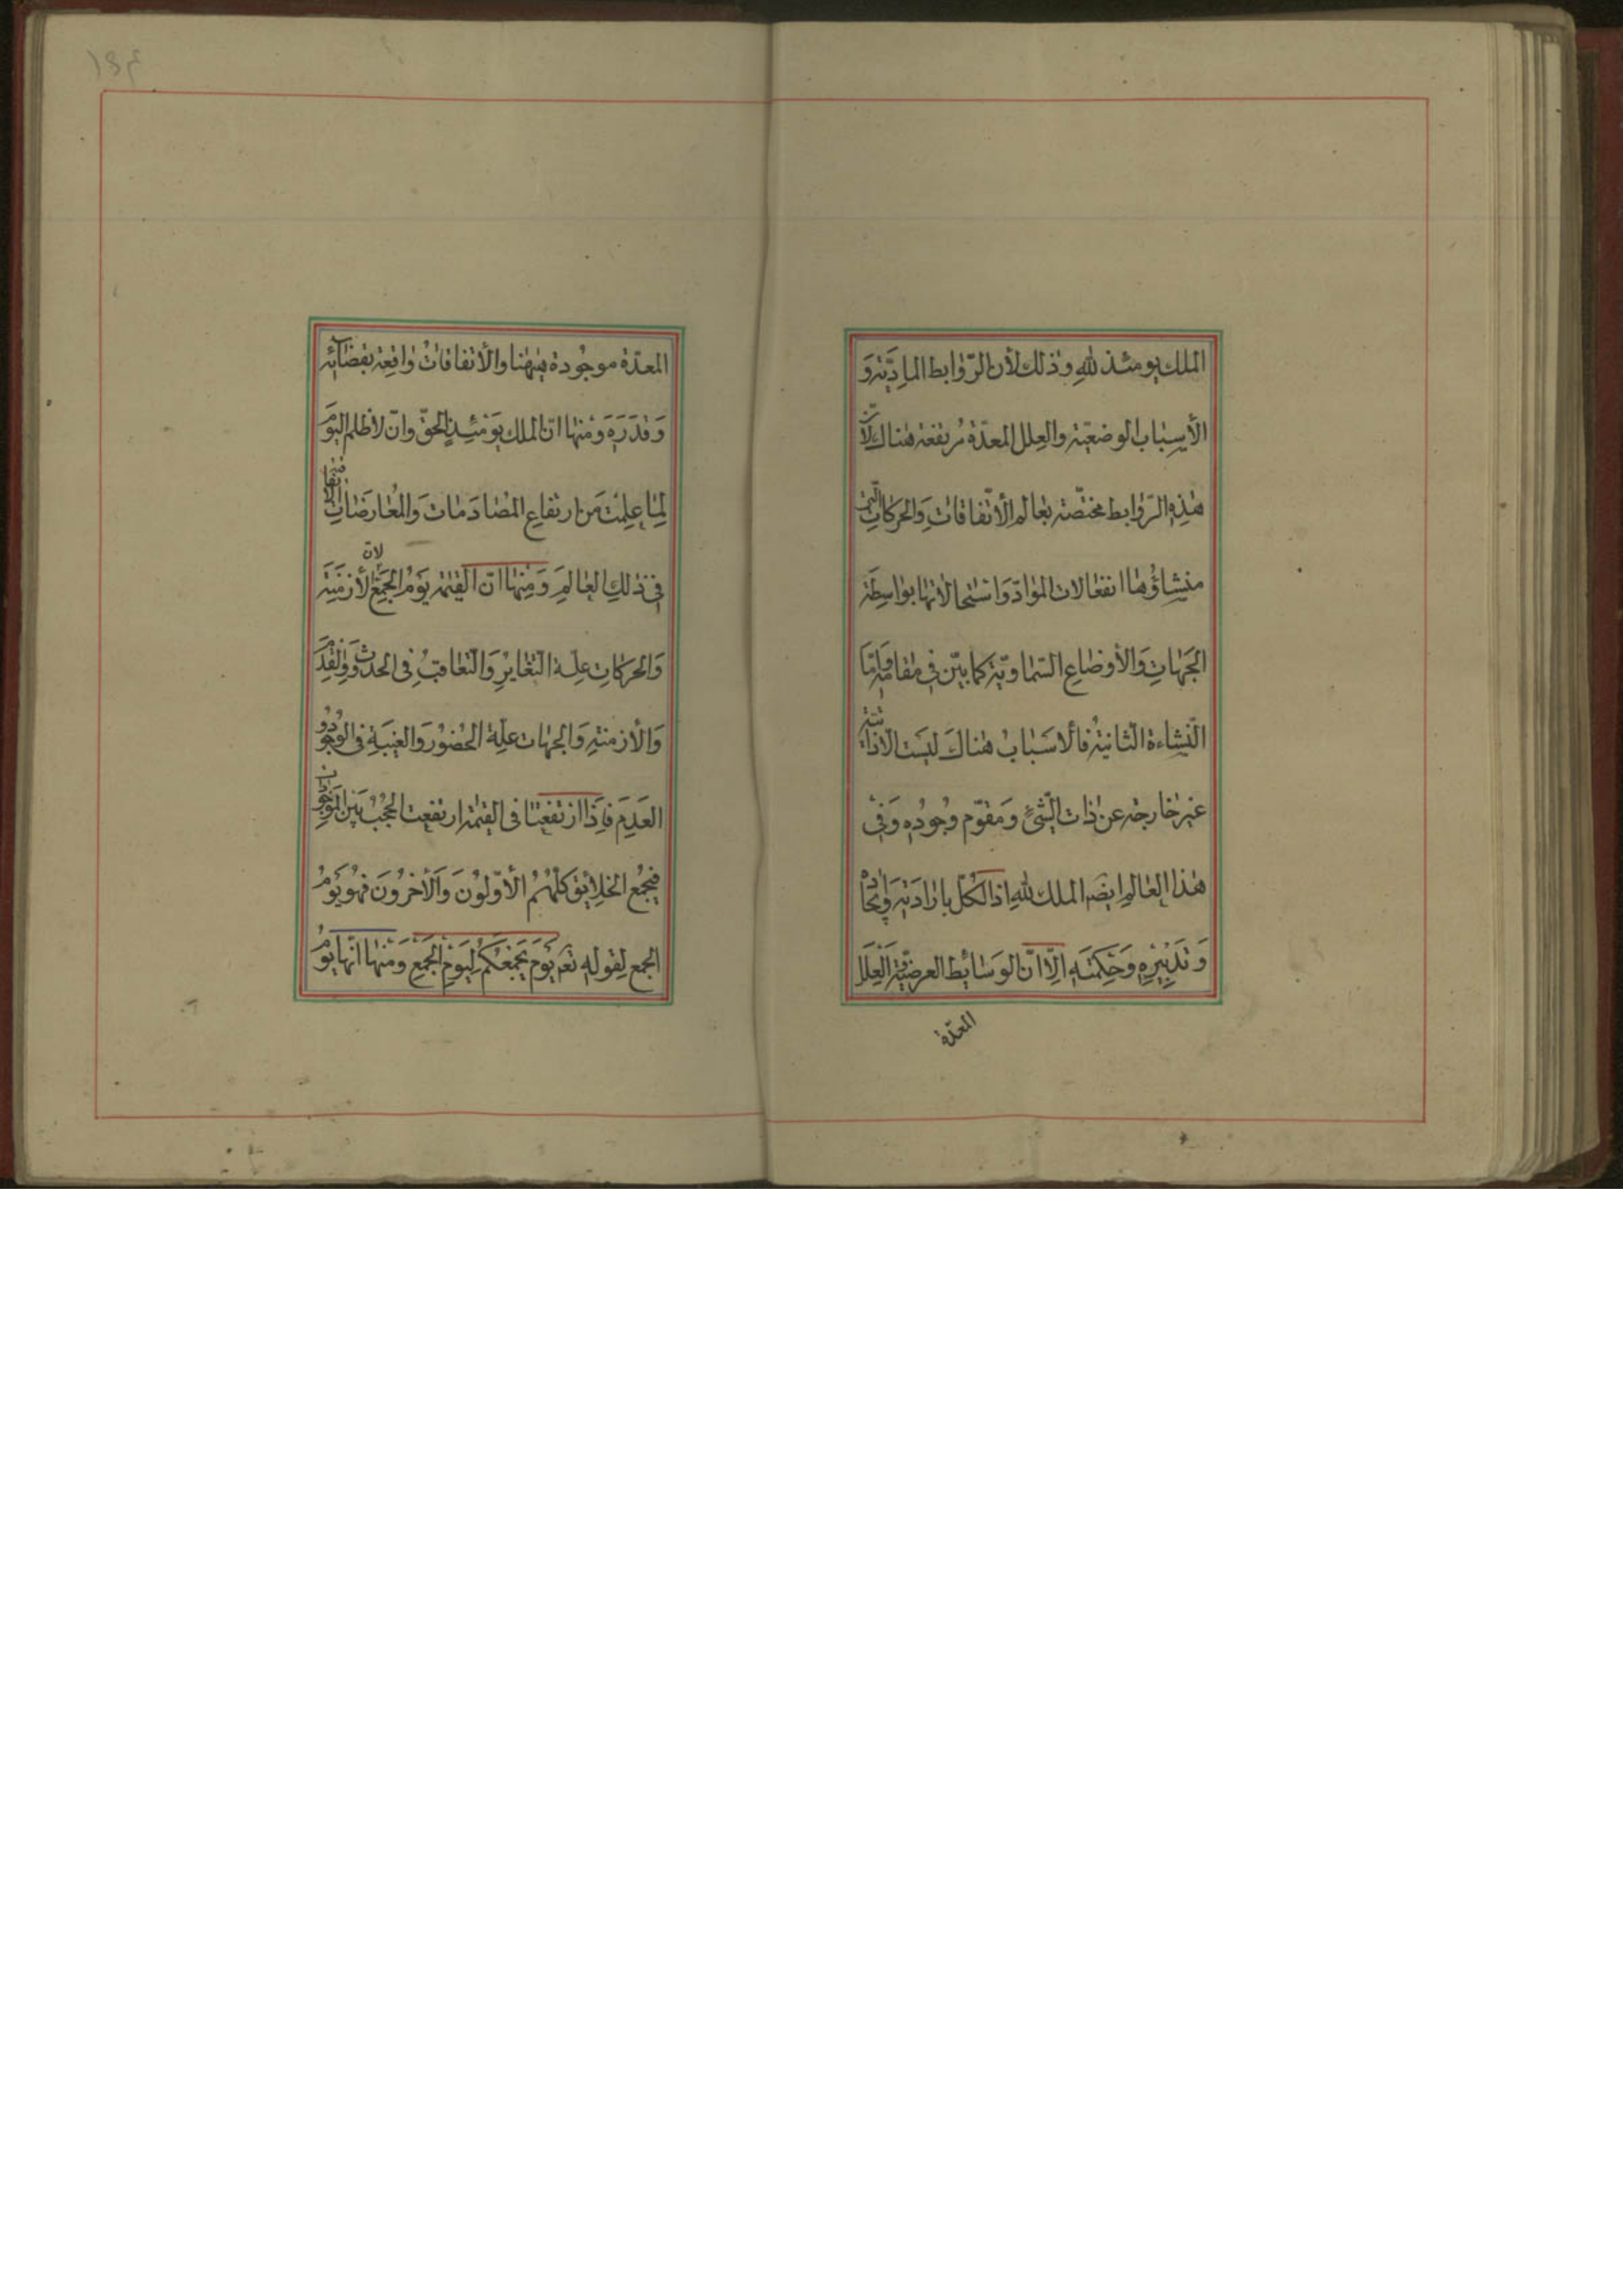 الملك يومئذ لله وذلك لأن الرّوابط المادّيّة و
الأسباب الوضعيّة والعلل المعدّة مرتفعة هناك لانّ
هذه الرّوابط مختصّة بعالم الأتّفاقات والحركات الّتى
منشاؤها انفعالات الموادّ واستحالاتها بواسطة
الجهات والأوضاع السّماويّة كما بيّن فى مقامه وامّا
النّشاءة الثّانية فألاسباب هناك ليست الّا ذاتيّة
غير خارجة عن ذات الشّئ ومقوّم وجوده وفى
هذا العالم ايضَ الملك لله اذ الكلّ بارادته وايجاده
وتدبيره وحكمته الّا انّ الوسائط العرضيّة والعلل
المعدّة
١٤٩
المعدّة موجودة هيهنا والأتفاقات واقعة بقضائه
وقدره ومنها انّ الملك يومئذ الحق وانّ لا ظلم اليوم
لما علمت من ارتفاع المصادمات والمعارضات الاتفاقية
فى ذلك العالم ومنها انّ القيمة يوم الجمع لانّ الأزمنة
والحركات علّة التّغاير والتّعاقب فى الحدوث والقدم
والأزمنة والجهات علّة الحضور والغيبة فى الوجود و
العدم فاذا ارتفعتا فى القيمة ارتفعت الحجب بين الموجودات
فيجمع الخلايق كلّهم الأوّلون والأخرون فهو يوم
الجمع لقوله تعم يوم يجمعكم ليوم الجمع ومنها انّها يوم